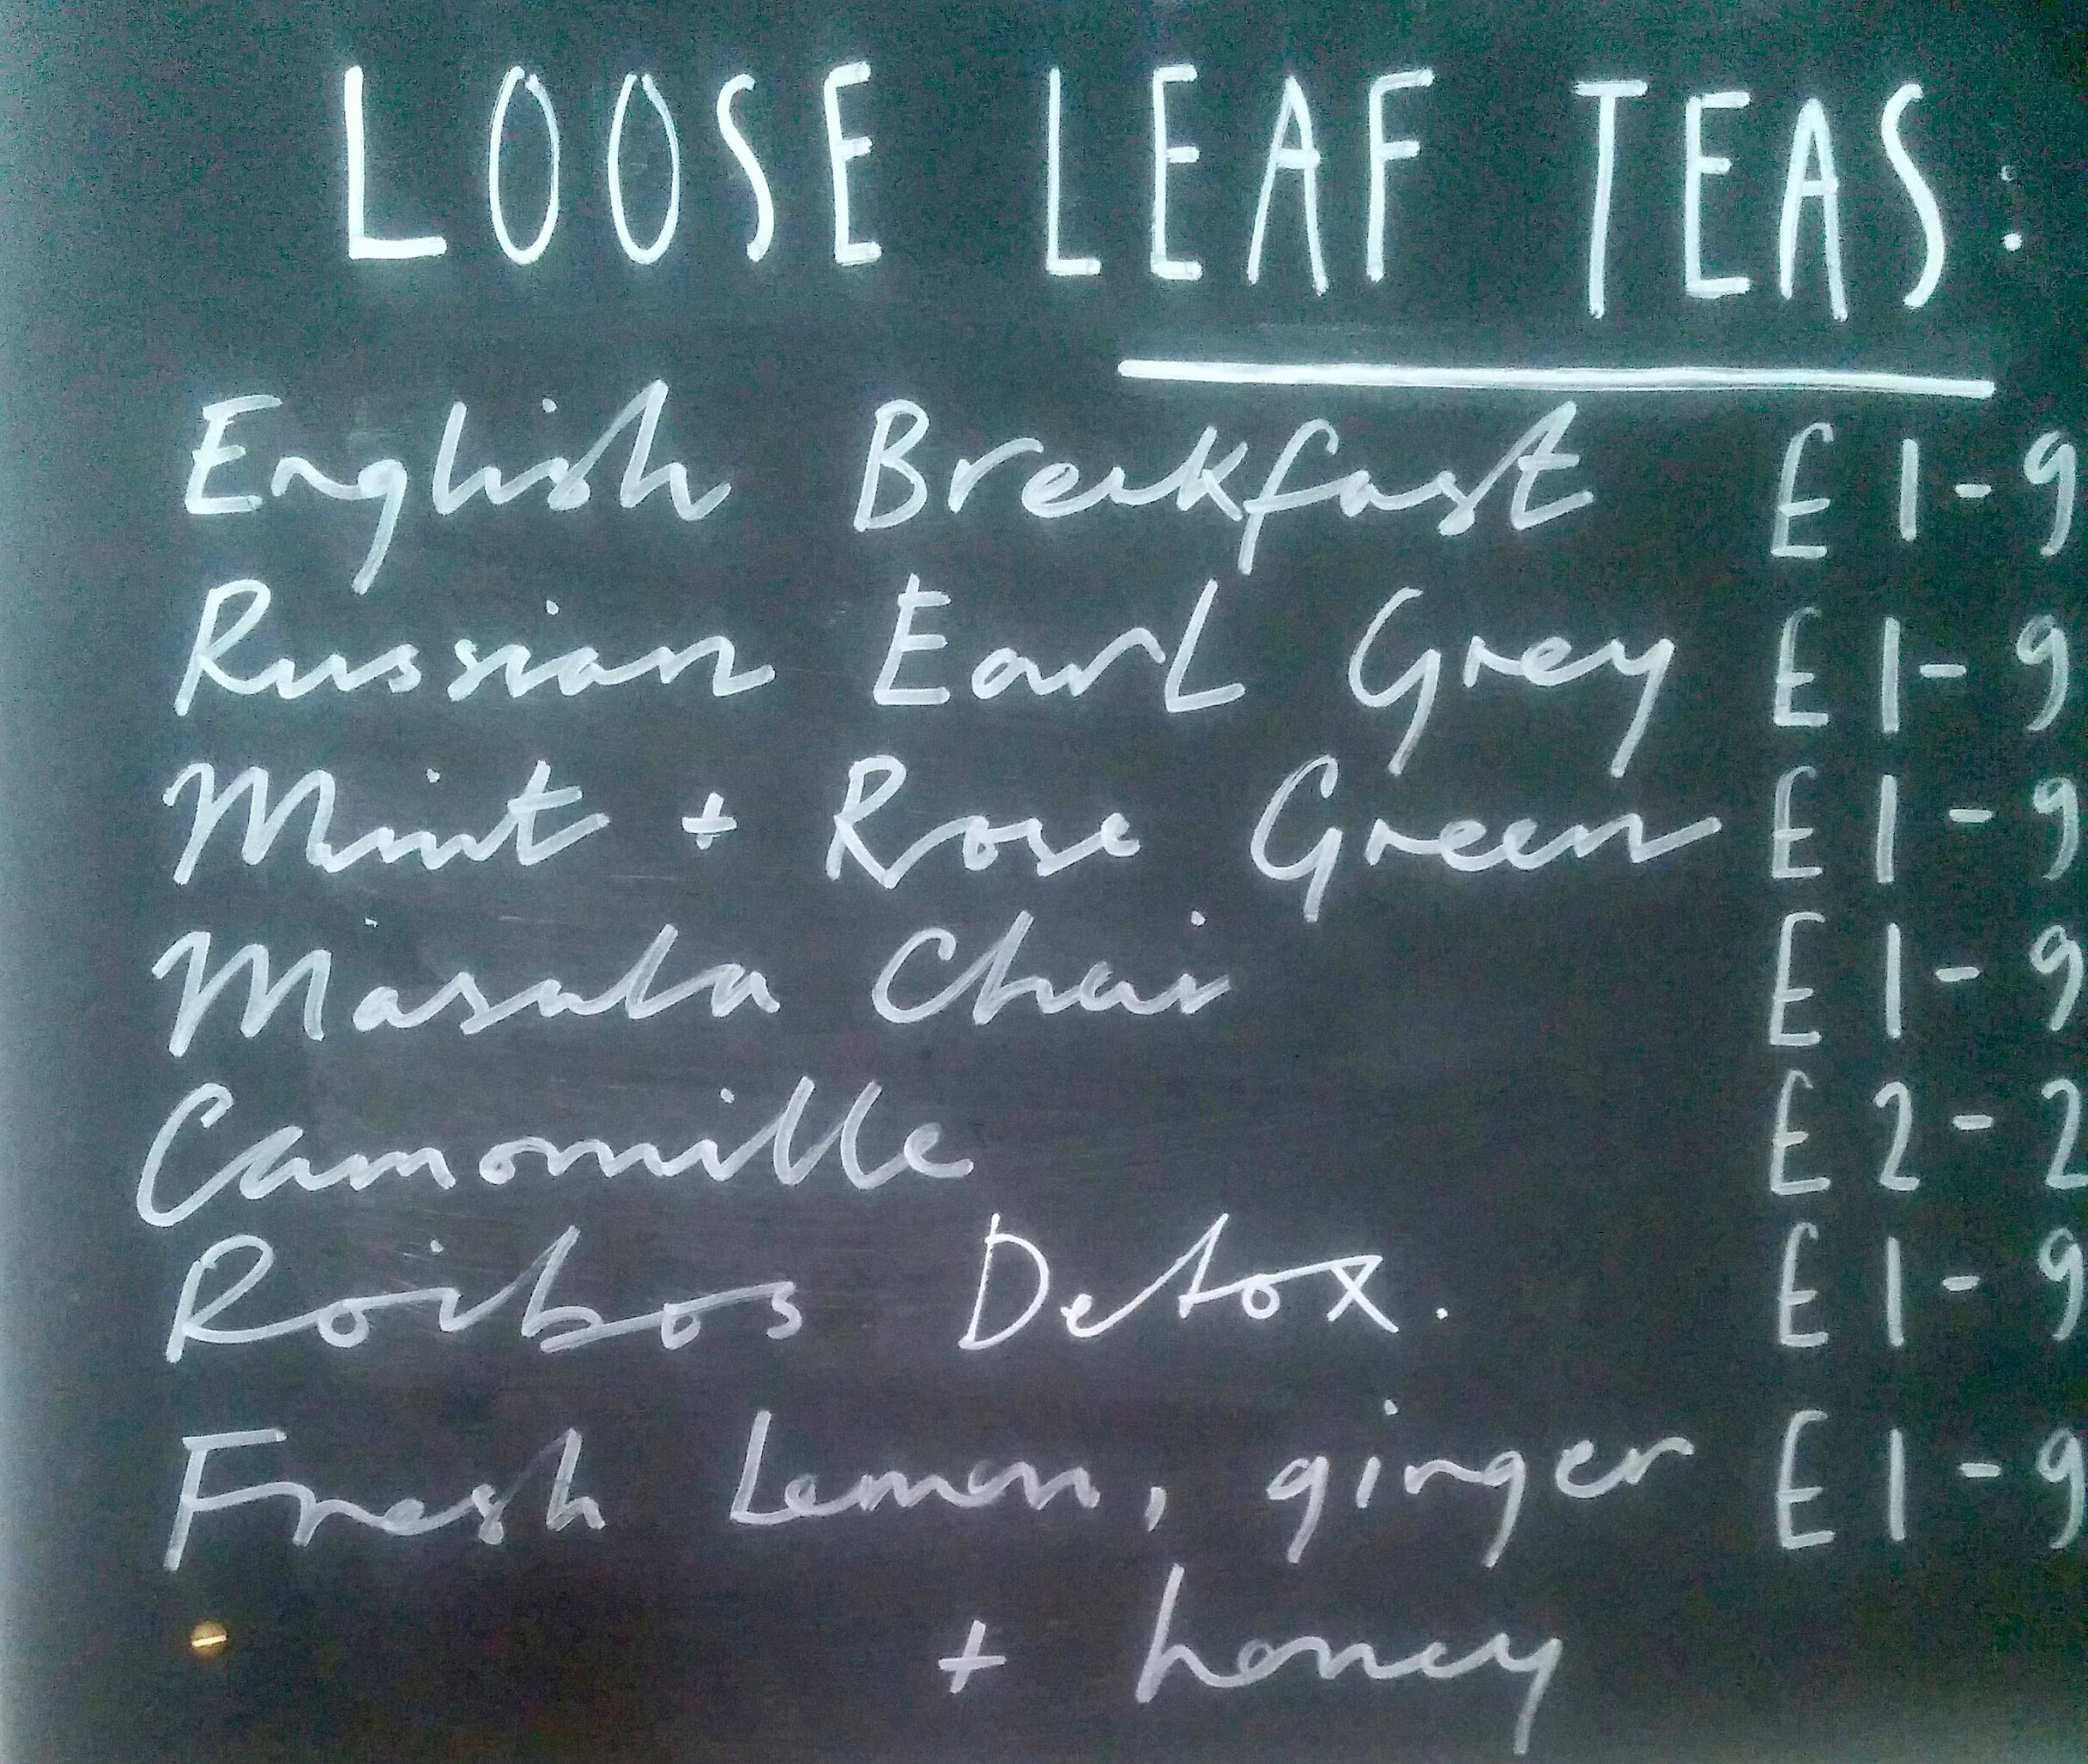 LOOSE LEAF TEAS:
English Breakfast £1-9
Russian Earl Grey £1-9
Mint + Rose Green £1-9
Masala Chai £1-9
Camomille £2-2
Roibos Detox. £1-9
Fresh Lemon, ginger £1-9
+ honey